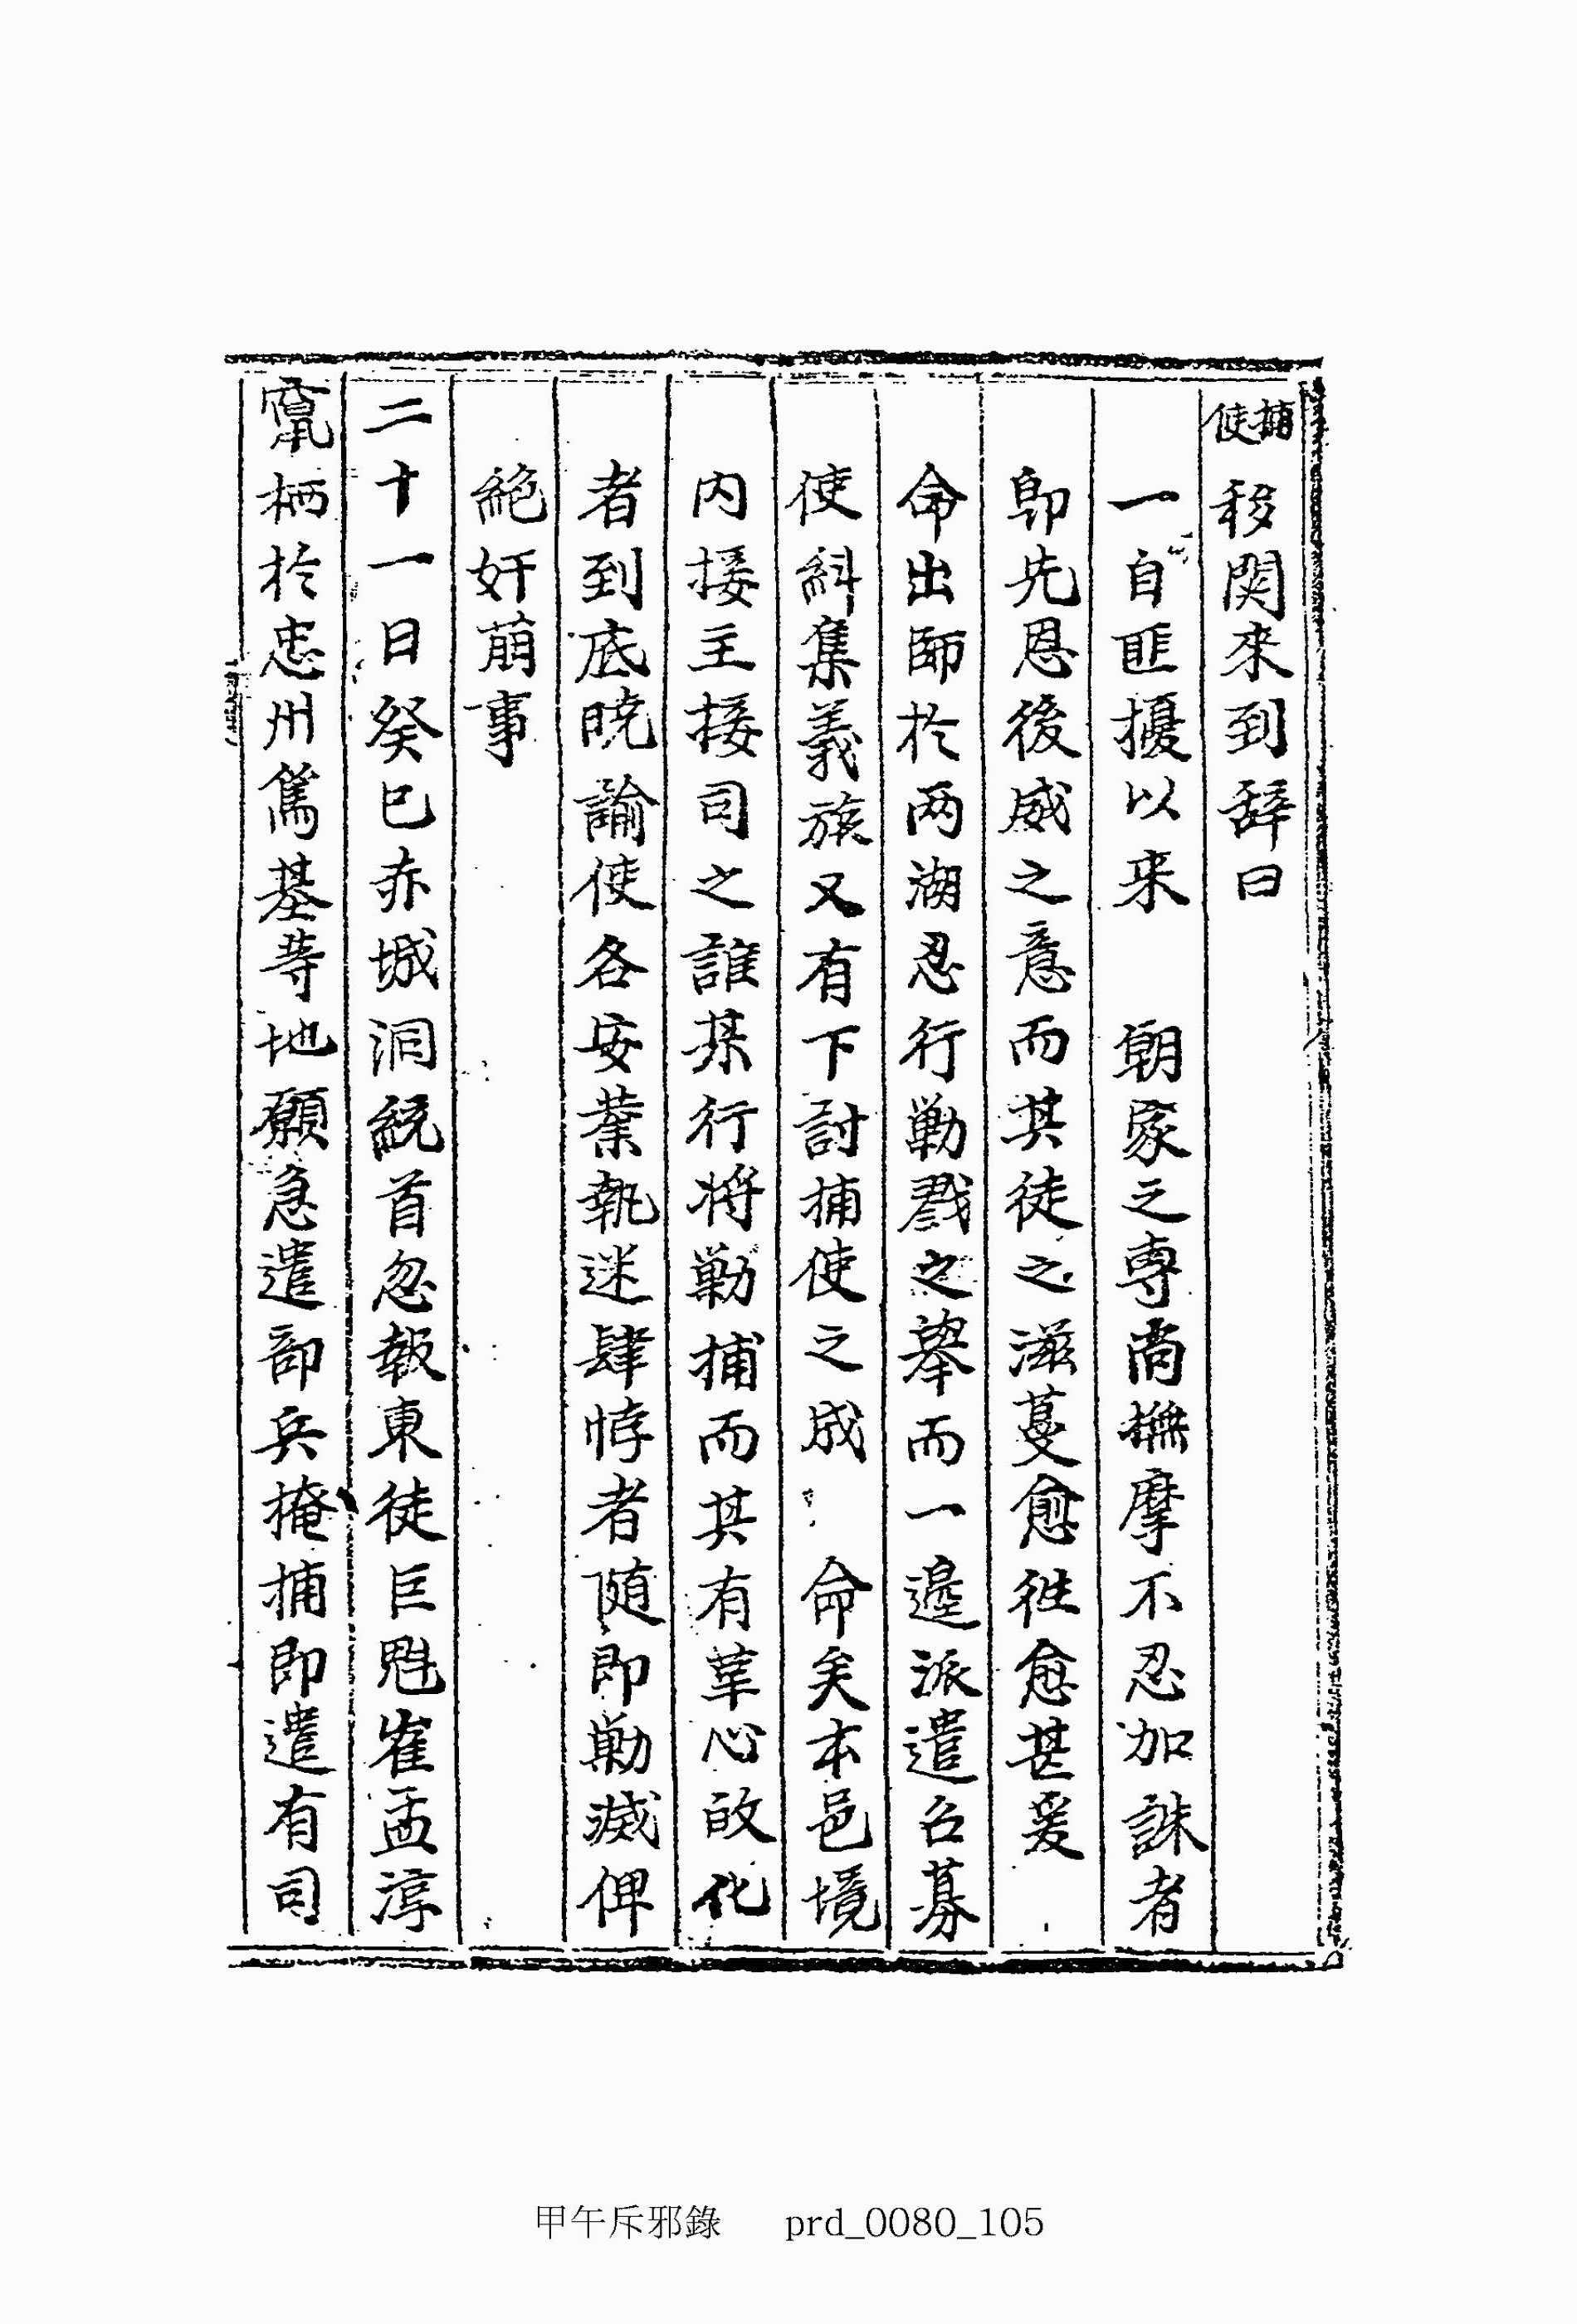 捕使移関來到辞曰
一自匪擾以来　朝家之専尚撫摩不忍加誅者
卽先恩後威之意而其徒之滋蔓愈徃愈甚爰
命出師於两湖忍行勦戮之擧而一邊派遣召募
使糾集義旅又有下討捕使之成　命矣本邑境
内接主接司之誰某行将勦捕而其有革心改化
者到底暁諭使各安業執迷肆悖者随即勦滅俾
絶奸萠事
二十一日癸巳赤城洞統首忽報東徒巨魁崔孟淳
竄栖於忠州篤基等地願急遣部兵掩捕即遣有司
甲午斥邪錄 prd_0080_105